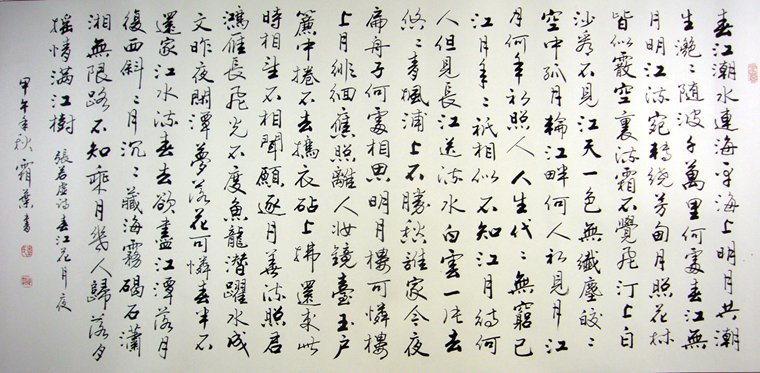 春江潮水連海平海上明月共潮
生灩〻随波千萬里何處春江無
月明江流宛轉繞芳甸月照花林
皆似霰空裏流霜不覺飛汀上白
沙看不見江天一色無纖塵皎〻
空中孤月輪江畔何人初見月江
月何年初照人人生代〻無窮已
江月年〻祇相似不知江月待何
人但見長江送流水白雲一片去
悠〻青楓浦上不勝愁誰家今夜
扁舟子何處相思明月樓可憐樓
上月徘徊應照離人妝鏡臺玉户
簾中捲不去擣衣砧上拂還來此
時相望不相聞願逐月華流照君
鴻雁長飛光不度魚龍潛躍水成
文昨夜閑潭夢落花可憐春半不
還家江水流春去欲盡江潭落月
復西斜〻月沉〻藏海霧碣石瀟
湘無限路不知乘月幾人歸落月
摇情滿江樹 張若虚詩春江花月夜
甲午年秋 霜葉書